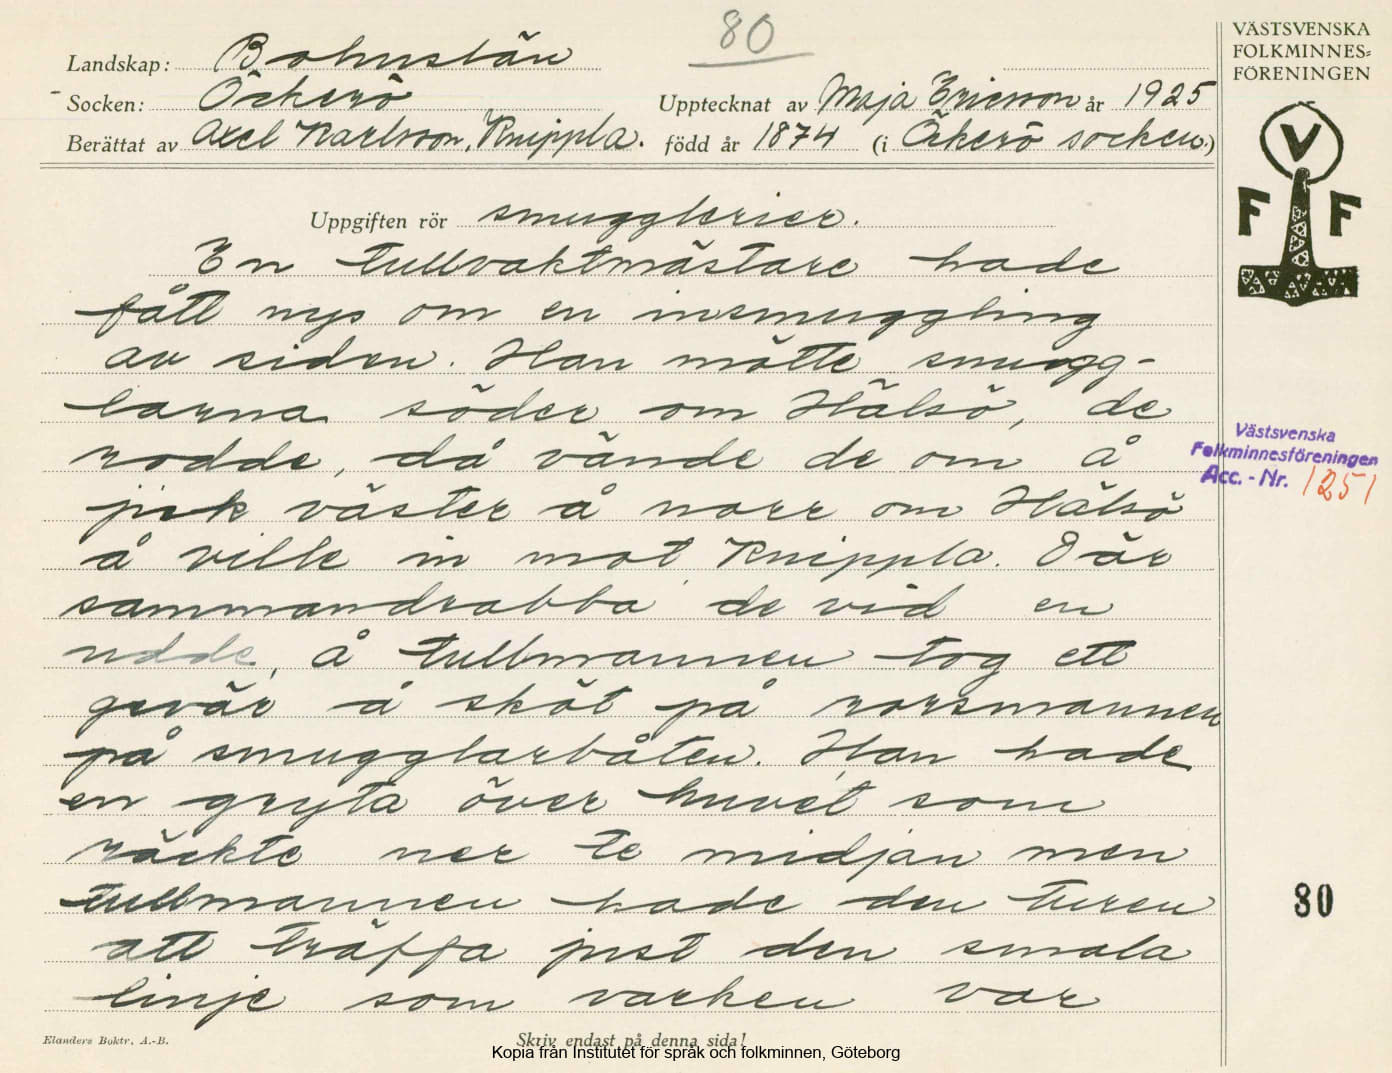 80
Landskap: Bohuslän
Socken: Öckerö
Upptecknat av Maja Ericsson år 1925
Berättat av Axel Karlsson, Knippla.
född år 1874 (i Öckerö socken.)
VÄSTSVENSKA
FOLKMINNES=
FÖRENINGEN
V
F F
Uppgiften rör smugglerier.
En tullvaktmästare hade
fått nys om en insmuggling
av siden. Han mötte smugg-
larna söder om Hälsö, de
rodde, då vände de om å
jick väster å norr om Hälsö
å ville in mot Knippla. Där
sammandrabba de vid en
udde, å tullmannen tog ett
gevär å sköt på rorsmannen
på smugglarbåten. Han hade
en gryta över huvet som
räckte ner te midjan men
tullmannen hade den turen
att träffa just den smala
linje som varken var
Västsvenska
Folkminnesföreningen
Acc. - Nr. 1251
80
Elanders Boktr. A.-B.
Skriv endast på denna sida!
Kopia från Institutet för språk och folkminnen, Göteborg